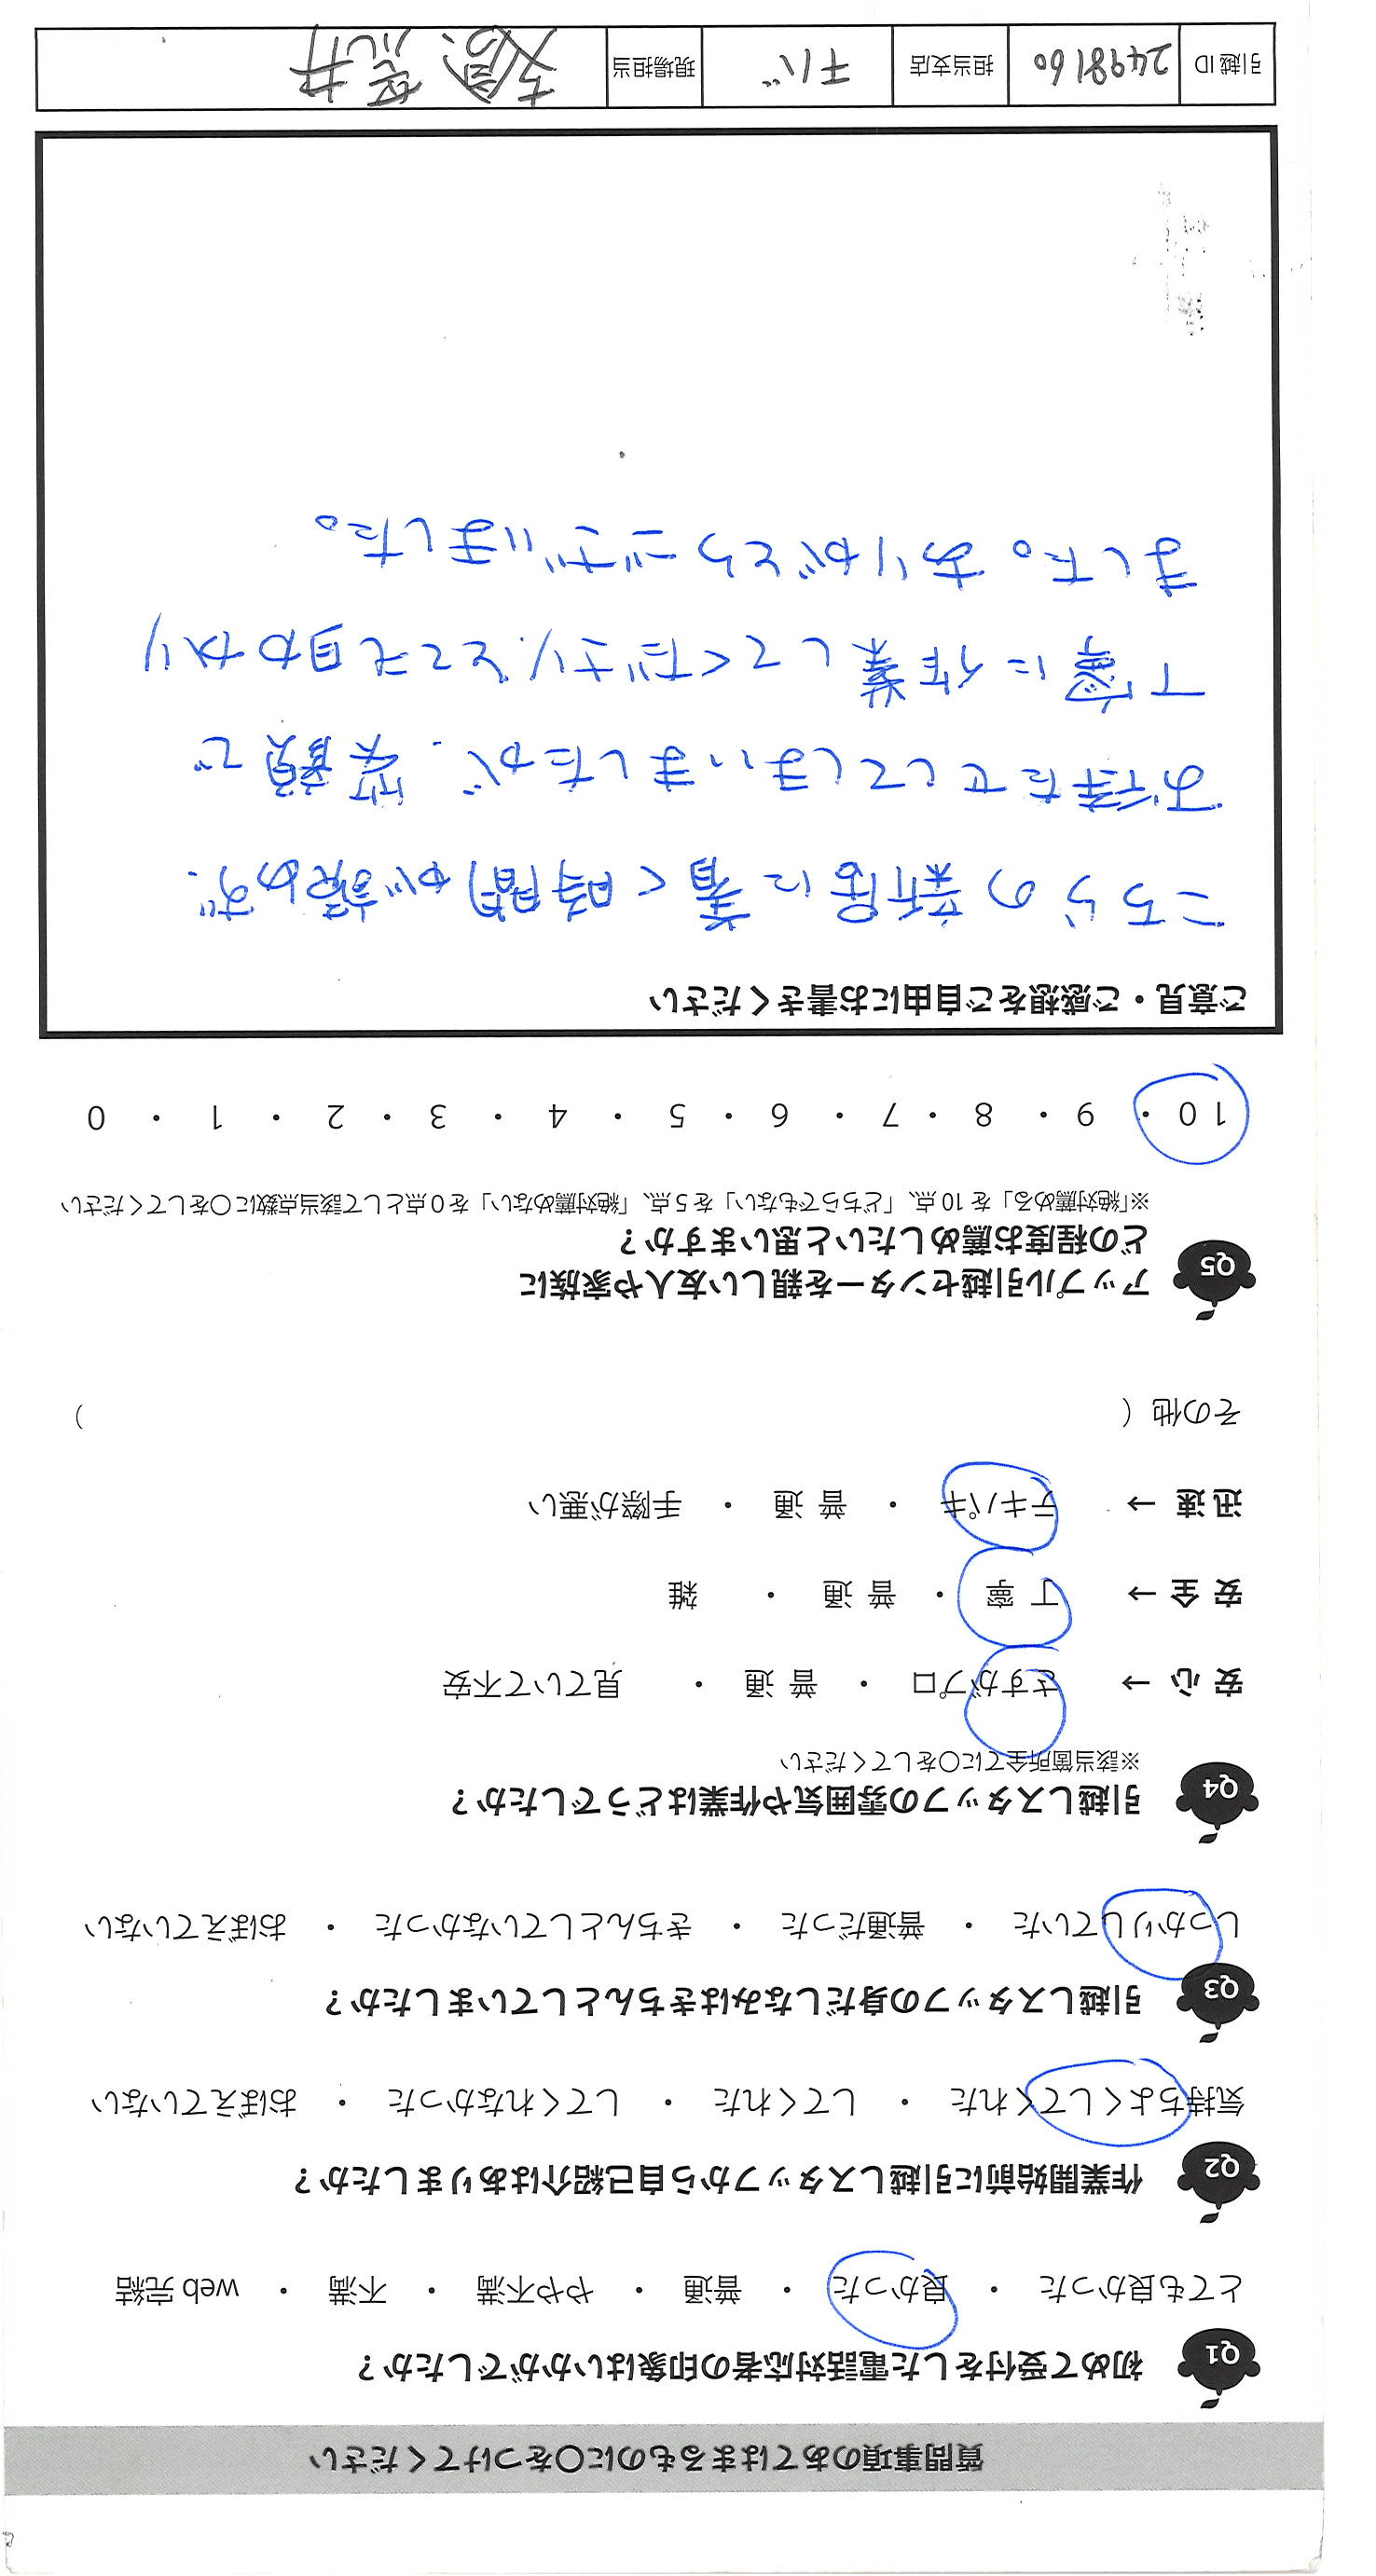 質問事項のあてはまるものに〇をつけてください
Q1 初めて受付をした電話対応者の印象はいかがでしたか？
とても良かった ・ 良かった ・ 普通 ・ やや不満 ・ 不満 ・ web 完結
Q2 作業開始前に引越しスタッフから自己紹介はありましたか？
気持ちよくしてくれた ・ してくれた ・ してくれなかった ・ おぼえていない
Q3 引越しスタッフの身だしなみはきちんとしていましたか？
しっかりしていた ・ 普通だった ・ きちんとしていなかった ・ おぼえていない
Q4 引越しスタッフの雰囲気や作業はどうでしたか？
※該当箇所全てに〇をしてください
安心 → さすがプロ ・ 普通 ・ 見ていて不安
安全 → 丁寧 ・ 普通 ・ 雑
迅速 → テキパキ ・ 普通 ・ 手際が悪い
その他（ ）
Q5 アップル引越センターを親しい友人や家族に
どの程度お薦めしたいと思いますか？
※「絶対薦める」を 10 点、「どちらでもない」を 5 点、「絶対薦めない」を 0 点として該当点数に〇をしてください
10 ・ 9 ・ 8 ・ 7 ・ 6 ・ 5 ・ 4 ・ 3 ・ 2 ・ 1 ・ 0
ご意見・ご感想をご自由にお書きください
こちらの新居に着く時間が読めず、
お待たせしてしまいましたが、笑顔で
丁寧に作業してくださり、とても助かり
ました。ありがとうございました。
引越 ID 2498160 担当支店 チバ 現場担当